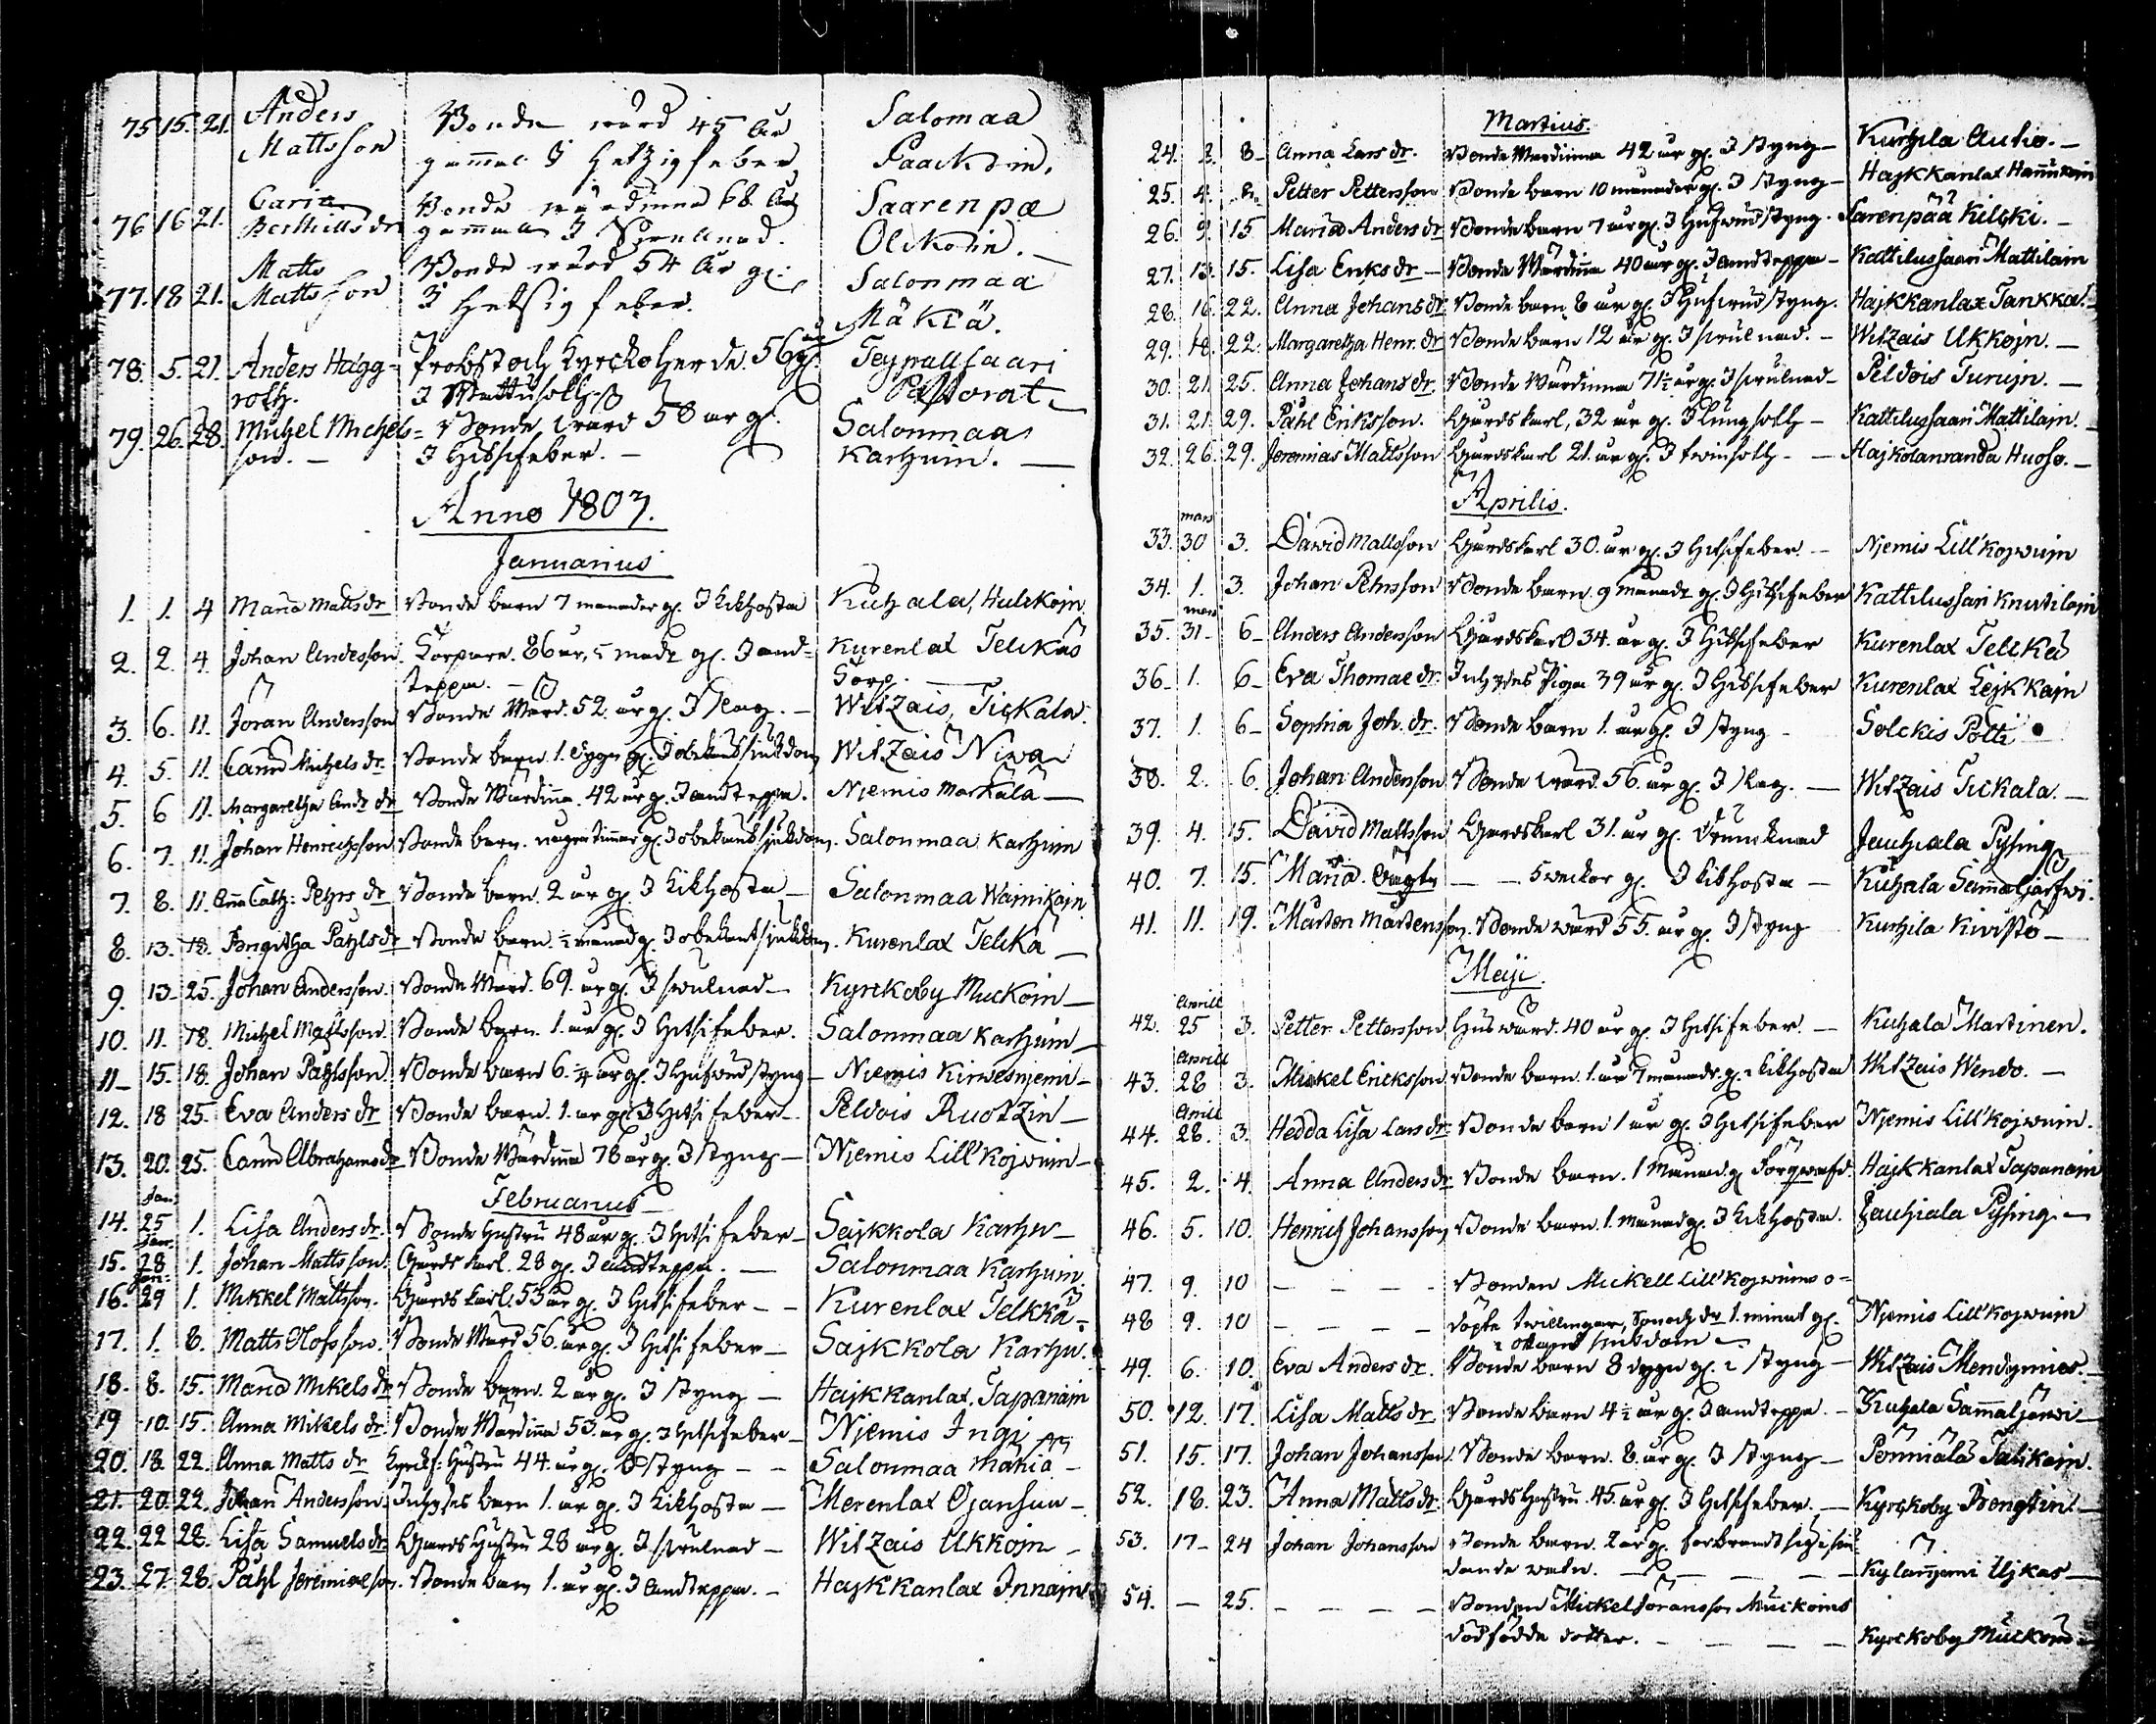 75 15. 21. Anders Bonde wärd 45 år Salomaa
Mattsson gammal I hetzigfeber Paackoin.
76 16 21. Carin Bonde wärdinna 68 år Saarenpæ
Berthills dr gammal I Swullnad. Olckoin.
77. 18 21. Matts Bonde wärd 54 år gl. Salonmaa
Mattsson I hetsig feber. Mäkiä.
78. 5. 21. Anders Hägg- Probst och Kyrckoherde 56 år gl. Teypallsaari
roth. I Wattusoth Pastorat
79. 26. 28. Michel Michels= Bonde wärd 58 år gl. Salonmaa
son. I Hitsifeber. Karhuin.
Anno 1803.
Januarius
1. 1. 4 Maria Matts dr Bonde barn 7 månader gl. I Kikhosta Kuhala, Hulckoin
2. 2. 4. Johan Andersson. Torpare. 86 år, 5 madr gl. I and= Kurenlax Telikäs
teppa. Torp.
3. 6. 11. Jöran Andersson Bonde Wärd. 52. år gl. I slag. Witzais, Tickala.
4. 5. 11. Carin Michels dr Bonde barn 1. dygn gl. I obekant siukdom Witzais Niwa
5. 6 11. Margaretha And: dr Bonde Wärdinna. 42 år gl. I andteppa. Njemis Markala
6. 7. 11. Johan Henrichsson Bonde barn. några timar gl. I obekant siukdom. Salonmaa Karhuin
7. 8. 11. Anna Cath: Pehrs dr Bonde barn. 2 år gl. I Kikhosta Salonmaa Wainikain
8. 13. 18. Brigitha Pahls dr Bonde barn. ½ månad gl. I obekant siukdom. Kurenlax Telikä
9. 13. 25. Johan Andersson. Bonde Wärd. 69. år gl. I swulnad Kyrckoby Muckoin
10. 11. 18. Michel Mattsson. Bonde barn. 1. år gl. I Hitsifeber. Salonmaa Karhuin
11 15. 18. Johan Pahlsson. Bonde barn 6. ¼ år gl. I Hufwud styng Niemis Kirwesnjemi
12. 18 25. Eva Anders dr Bonde barn. 1. år gl. I Hitsifeber Peldois Ruotzin
13. 20. 25. Carin Abrahams dr Bonde Wärdinna 78 år gl. I styng Njemis Lill Kojwuin
Februarius
Jan:
14. 25 1. Lisa Anders dr. Bonde hustru 48 år gl. I Hitsifeber Saikkola Karhu
Jan:
15. 28 1. Johan Mattsson. Gårds karl. 28 gl. I andteppa. Salonmaa Karhuin.
Jan:
16. 29 1. Mikkel Mattsson. Gårds karl. 53 år gl. I Hitsifeber Kurenlax Telkkä
17. 1. 8. Matts Olofsson. Bonde Wärd 56. år gl. I Hitsifeber Saikkola Karhu.
18. 8. 15. Maria Mikels dr Bonde barn. 2 år gl. I styng Hajkkanlax. Tapanain
19 10. 15. Anna Mikels dr. Bonde Wärdinna 53. år gl. I Hitsifeber Njemis Ingi
20. 18. 22. Anna Matts dr Hustru 44. år gl. I styng Salonmaa Mäkiä
21. 20. 22. Johan Andersson. Inhyses barn 1. år gl. I Kikhosta Merenlax Ojansuu
22. 22 28. Lisa Samuels dr Gårds hustru 28 år gl. I swulnad Witzais Ukkoin
23. 27. 28. Pahl Jeremiæson. Bonde barn 1. år gl. I andteppa. Hajkkanlax Innain
Martius.
24. 2. 8 Anna Lars dr. Bonde Wärdinna 42 år gl. I styng Kurhila Autio.
25. 4. 8. Petter Pettersson Bonde barn 10 månader gl. I styng Hajkkanlax Hannukain
26. 9. 15. Maria Anders dr Bonde barn 7 år gl. I Hufwud styng. Sarenpää Kilcki.
27. 13. 15. Lisa Eriks dr Bonde Wärdinna 40 år gl. I andteppa Kattilussaari Mattilain
28. 16. 22. Anna Johans dr Bonde barn 8 år gl. I Hufwud styng. Hajkkanlax Tankka
29. 18. 22. Margaretha Henr. dr Bonde barn 12 år gl. I swulnad. Witzais Ukkojn.
30. 21. 25. Anna Johans dr. Bonde Wärdinna 71½ år gl. I swulnad Peldois Turujn.
31. 21. 29. Pahl Eriksson. Gårdskarl, 32 år gl. I Lungsoth Kattilussaari Mattilain.
32. 26. 29. Jeremias Mattsson Gårdskarl 21. år gl. I twinsoth Hajkolanranda Huoso.
Aprilis.
mars
33. 30 3. David Mattsson Gårdskarl 30. år gl. I Hitsifeber. Njemis Lill Kojwuin
34. 1. 3. Johan Pehrsson Bonde barn. 9 månadr gl. I Hitsifeber Kattilussari Knutilain
mars
35. 31 6 Anders Andersson Gårdskarl 34. år gl. I Hitsifeber Kurenlax Telckä
36 1. 6 Eva Thomæ dr. Inhyses Piga 39 år gl. I Hitsifeber Kurenlax Lejkkajn
37. 1. 6 Sophia Joh. dr. Bonde barn 1. år gl. I styng Solckis Potti
38. 2. 6. Johan Andersson Bonde wärd. 56. år gl. I slag. Witzais Tickala.
39. 4. 15. David Mattsson Gårdskarl 31. år gl. Drunknad Jauhiala Pysing
40. 7. 15. Maria. Oägta 5 weckor gl. I Kikhosta Kuhala Samaljärfwi.
41. 11. 19. Mårten Mårtensson. Bonde wärd 55. år gl. I styng Kurhila Kivistö
Maji.
Aprill
42. 25 3. Petter Pettersson Huswärd. 40 år gl. I Hitsifeber. Kuhala Martinen.
Aprill
43. 28 3. Mickel Ericksson Bonde barn. 1. år 7 månadr. gl. i Kikhosta Witzais Wendo.
Aprill
44. 28. 3. Hedda Lisa Lars dr Bonde barn 1 år gl. I Hitsifeber Njemis Lill Kojwuin.
45. 2. 4. Anna Anders dr. Bonde barn. 1 Månad gl. Hajkkanlax Tapanain
46. 5. 10. Henrich Johansson Bonde barn. 1. månad gl. I Kikhosta. Jauhiala Pysing
47. 9. 10 Bonden Mickell Lill Kojwuins o=
48 9. 10 döpta twillingar, Son och dr 1. minut gl. Njemis Lill Kojwuin
i okänd siukdom
49. 6. 10. Eva Anders dr. Bonde barn 8 dygn gl. i styng Witzais Mendymies.
50. 12. 17. Lisa Matts dr Bonde barn 4½ år gl. I andteppa. Kuhala Sammaljerwi
51. 15. 17. Johan Johansson. Bonde barn. 8. år gl. I styng Ponniälä Talikain.
52. 18. 23. Anna Matts dr. Gårds Hustru. 45. år gl. I Hitsifeber. Kyrckoby Bengtin
53. 17 24 Johan Johansson Bonde barn. 2 år gl. förbrändt sig i siu=
dande watn. Kylanjemi Ujkas
54. 25. Bonden Mickel Joransson Muckoins
dödfödda dotter. Kyrckoby Muckoin